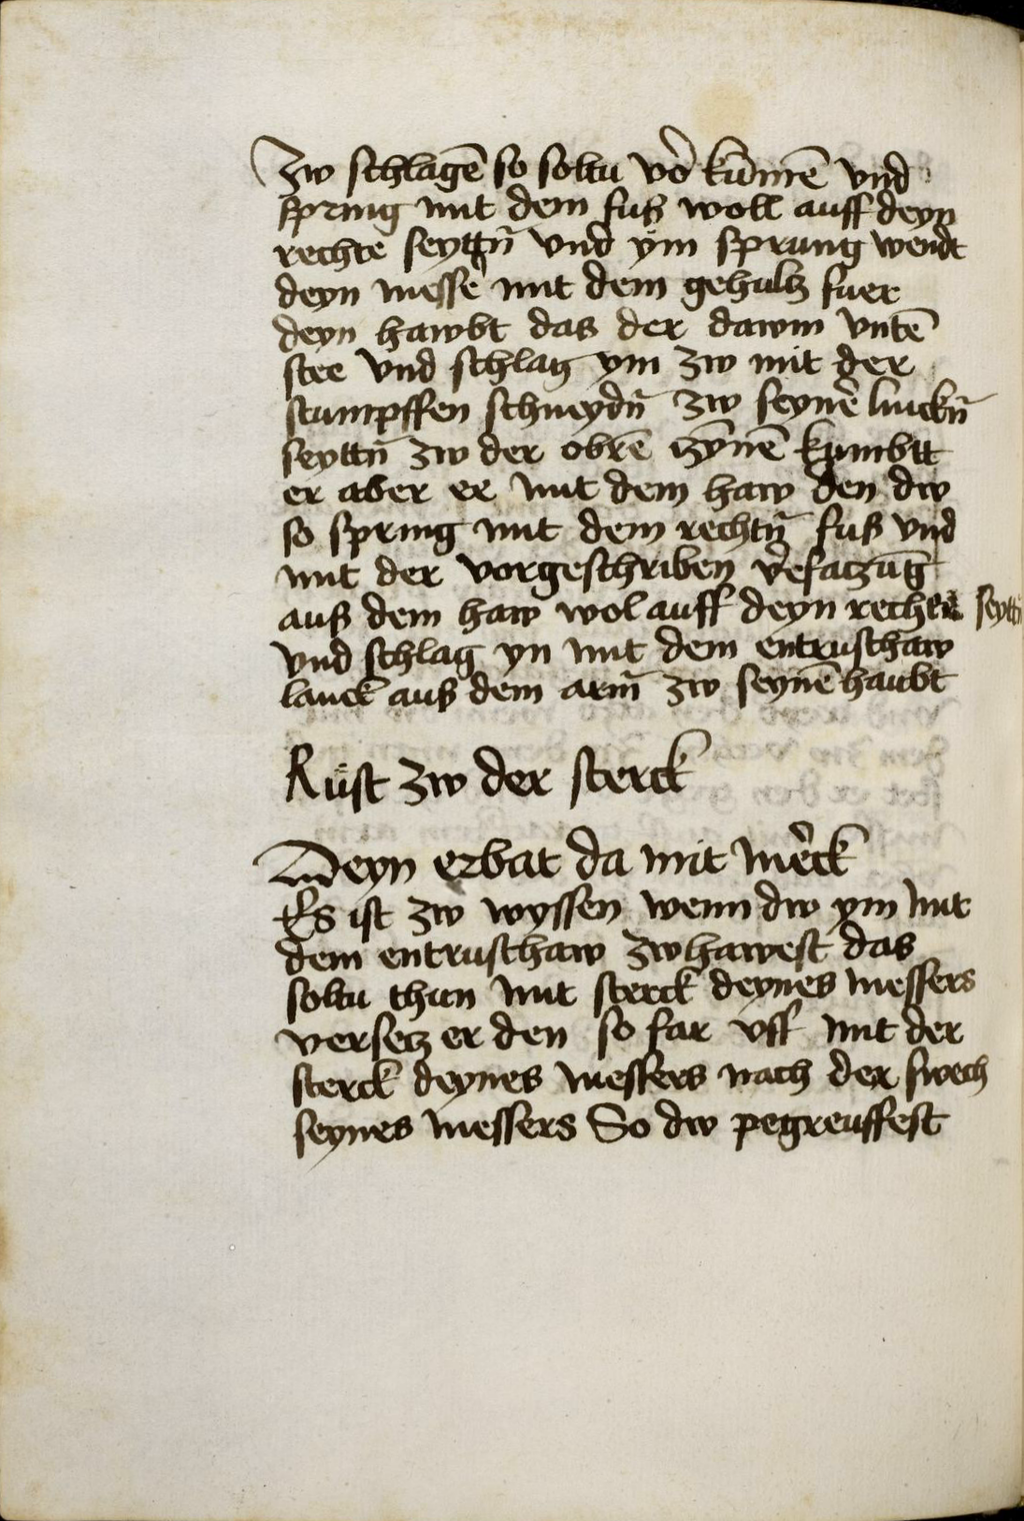 zw schlagē so soltu vō kūmē vnd
spring mit dem fuß woll auff deyn
rechte seyttñ vnd ym sprung wendt
deyn messē mit dem gehultz fuer
deyn hawbt das der dawm vntē
stee vnd schlag ym zw mit der
stumpffen schneydñ zw seynē linckñ
seyttñ zw der obrē zȳnē kumbtt
er aber er mit dem haw den dw
so spring mit dem rechtñ fuß vnd
mit der vorgeschriben v̄esatzūg
auß dem haw wol auff deyn rechte seytñ
vnd schlag yn mit dem entrusthaw
lanck auß dem arm̄ zw seynē haubt
Rust zw der sterck
Deyn erbat da mit mēck
Es ist zw wyssen wenn dw ym mit
dem entrusthaw zwhawest das
soltu thun mit sterck deynes messers
versetz er den so far vff mit der
sterck deynes messers nach der swech
seynes messers So dw pegreuffest